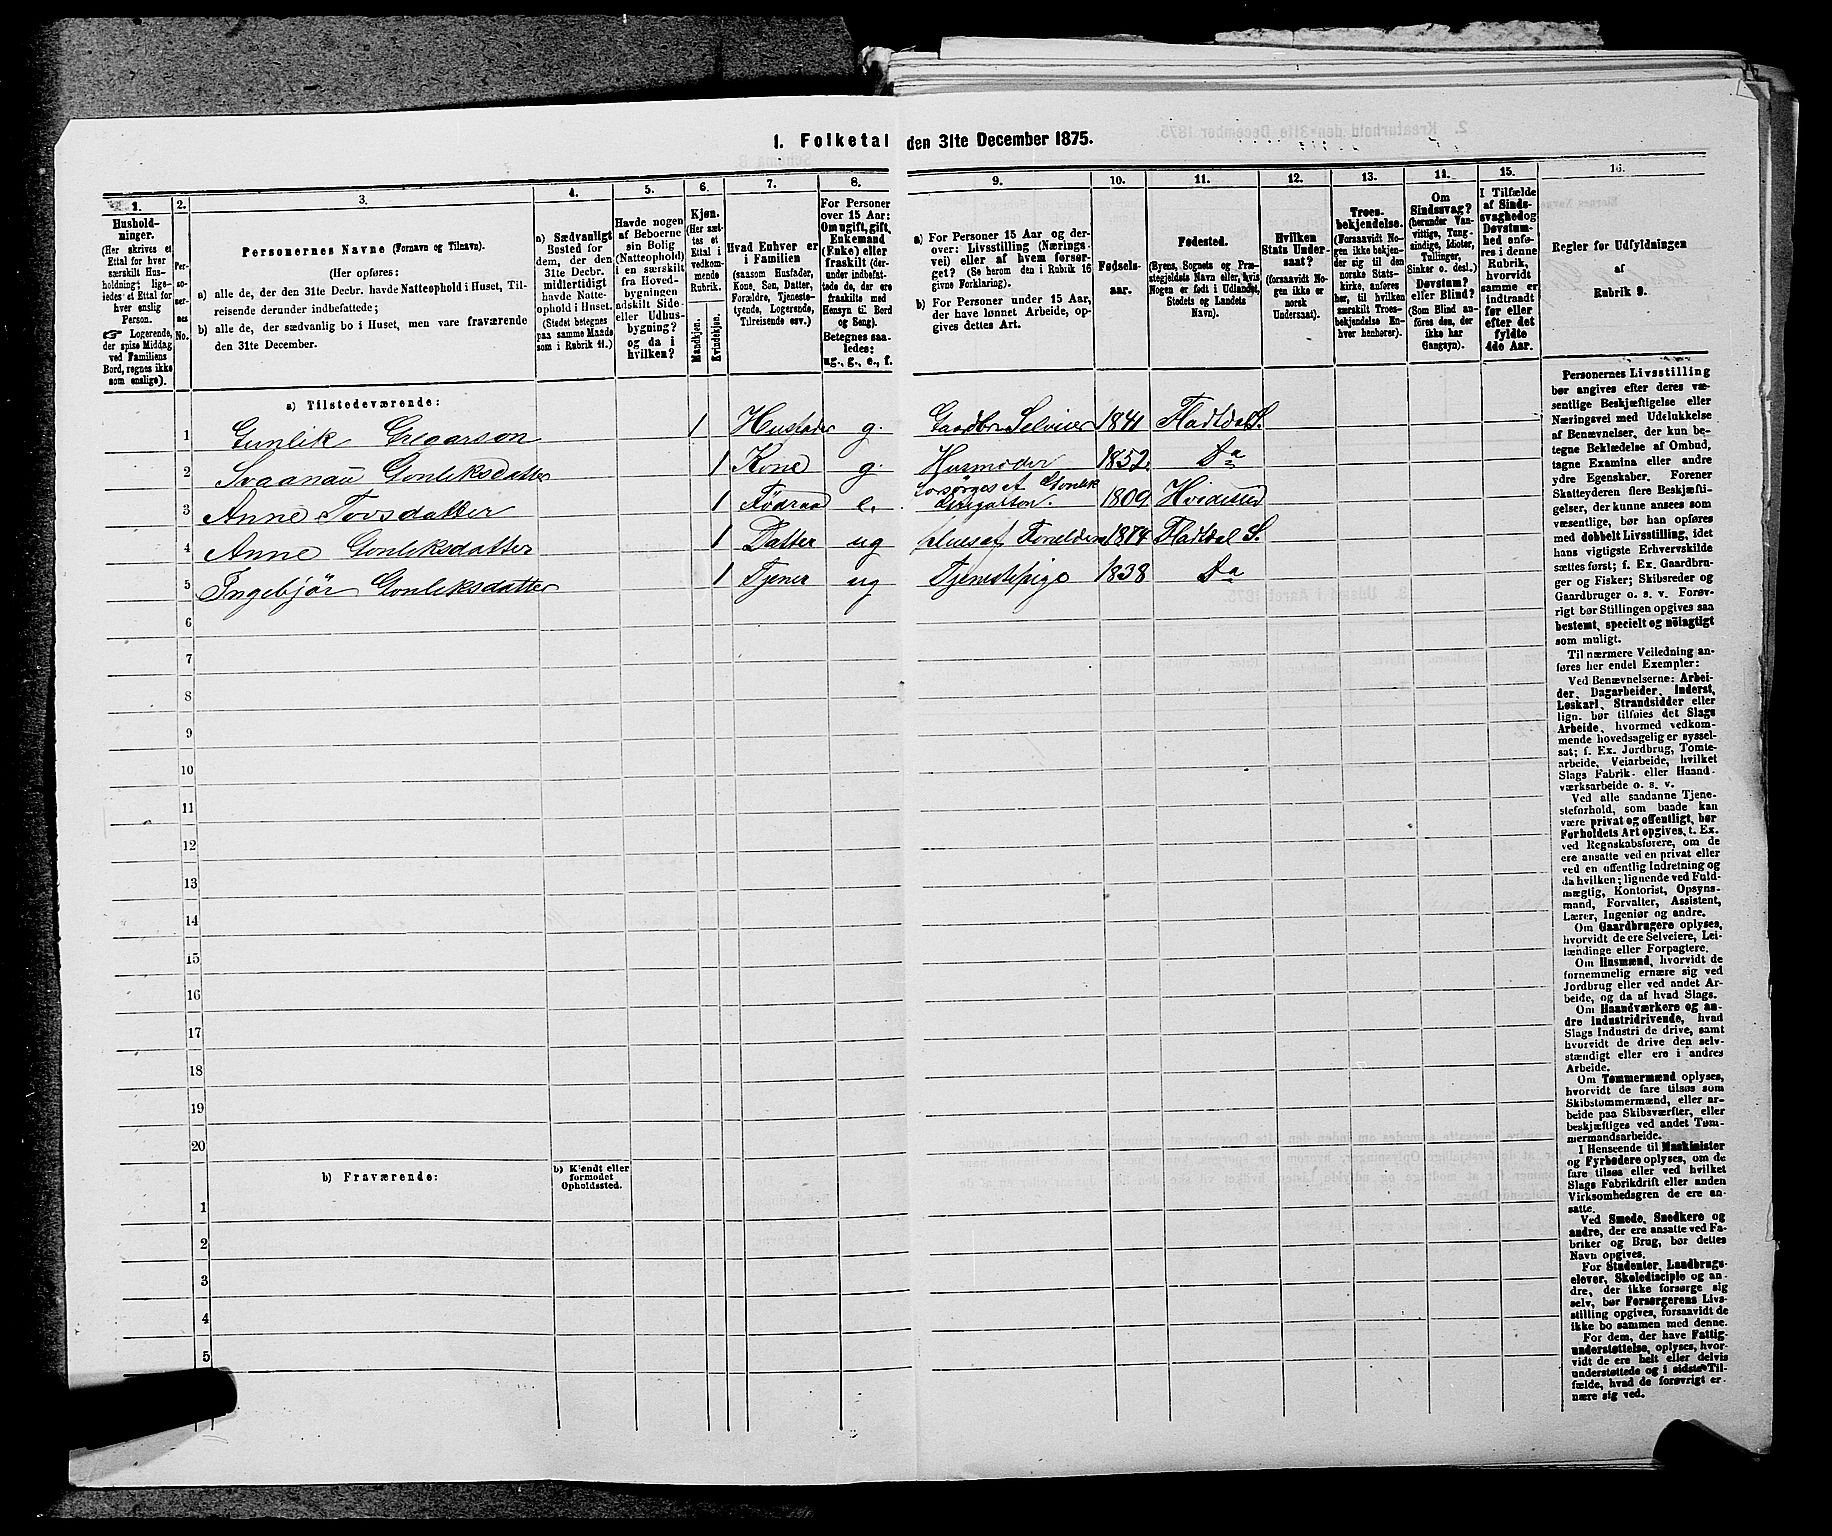 1. Folketal den 31te December 1875.
1.
Hushold-
ninger.
(Her skrives et
Ettal for hver
særskilt Hus-
holdning; lige-
ledes et Ettal for
hver enslig
Person.
☞ Logerende,
der spise Middag
ved Familiens
Bord, regnes ikke
som enslige).
2.
Per-
so-
ner-
nes
No.
3.
Personernes Navne (Fornavn og Tilnavn).
(Her opføres:
a) alle de, der den 31te Decbr. havde Natteophold i Huset, Til-
reisende derunder indbefattede;
b) alle de, der sædvanlig bo i Huset, men vare fraværende
den 31te December.
4.
a) Sædvanligt
Bosted for
dem, der den
31te Decbr.
midlertidigt
havde Natte-
ophold i Huset.
(Stedet betegnes
paa samme Maade
som i Rubrik 11.)
5.
Havde nogen
af Beboerne
sin Bolig
(Natteophold)
i en særskilt
fra Hoved-
bygningen
adskilt Side-
eller Udhus-
bygning?
og da i
hvilken?
6.
Kjøn.
(Her sæt-
tes et
Ettal i
vedkom-
mende
Rubrik.
Mandkjøn.
Kvindekjøn.
7.
Hvad Enhver er
i Familien
(saasom Husfader,
Kone, Søn, Datter,
Forældre, Tjeneste-
tyende, Logerende,
Tilreisende osv.)
8.
For Personer
over 15 Aar:
Om ugift, gift,
Enkemand
(Enke) eller
fraskilt (der-
under indbefat-
tede de, der ere
fraskilte med
Hensyn til Bord
og Seng).
Betegnes saa-
ledes:
ug., g., e., f.
9.
a) For Personer 15 Aar og der-
over: Livsstilling (Nærings-
vei) eller af hvem forsør-
get? (Se herom den i Rubrik 16
givne Forklaring).
b) For Personer under 15 Aar,
der have lønnet Arbeide, op-
gives dettes Art.
10.
Fødsels-
aar.
11.
Fødested.
(Byens, Sognets og Præ-
stegjeldets Navn eller, hvis
Nogen er født i Udlandet,
Stedets og Landets
Navn).
12.
Hvilken
Stats Under-
saat?
(forsaavidt No-
gen ikke er
norsk
Undersaat).
13.
Troes-
bekjendelse.
(Forsaavidt No-
gen ikke bekjen-
der sig til den
norske Stats-
kirke, anføres
her, til hvilken
særskilt Troes-
bekjendelse En-
hver henhører).
14.
Om
Sindssvag?
(herunder Van-
vittige, Tung-
sindige, Idioter,
Tullinger,
Sinker o. desl.)
Døvstum?
eller Blind?
(Som Blind an-
føres den, der
ikke har
Gangsyn).
15.
I Tilfælde
af Sinds-
svaghed og
Døvstum-
hed anfø-
res i denne
Rubrik,
hvorvidt
samme er
indtraadt
før eller
efter det
fyldte
4de Aar.
16.
Regler for Udfyldningen
af
Rubrik 9.
a) Tilstedeværende:
1 Gunlik Gregarson 1 Husfader g. Gaardbr Selveier 1841 Fladtdal S.
2 Gonleksdatter 1 Kone g. Husmoder 1852 Do
3 Anne Tovsdatter 1 Fødraad e. forsørges af Gonlek 1809 Hvideseid
4 Anne Gonleksdatter 1 Datter ug af Foreldrene 1874 Fladtdal S.
5 Ingebjør Gonleksdatter 1 Tjener ug Tjenestepige 1838 Do
6
7
8
9
10
11
12
13
14
15
16
17
18
19
20
b) Fraværende:
b) Kjendt eller
formodet
Opholdssted.
1
2
3
4
5
Personernes Livsstilling
bør angives efter deres væ-
sentlige Beskjæftigelse eller
Næringsvei med Udelukkelse
af Benævnelser, der kun be-
tegne Beklædelse af Ombud,
tagne Examina eller andre
ydre Egenskaber. Forener
Skatteyderen flere Beskjæfti-
gelser, der kunne ansees som
væsentlige, bør han opføres
med dobbelt Livsstilling, idet
hans vigtigste Erhvervskilde
sættes først; f. Ex. Gaardbru-
ger og Fisker; Skibsreder og
Gaardbruger o. s. v. Forøv-
rigt bør Stillingen opgives saa
bestemt, specielt og nøiagtigt
som muligt.
Til nærmere Veiledning an-
føres her endel Exempler:
Ved Benævnelserne: Arbei-
der, Dagarbeider, Inderst,
Løskarl, Strandsidder eller
lign. bør tilføies det Slags
Arbeide, hvormed vedkom-
mende hovedsagelig er syssel-
sat; f. Ex. Jordbrug, Tomte-
arbeide, Veiarbeide, hvilket
Slags Fabrik- eller Haand-
værksarbeide o. s. v.
Ved alle saadanne Tjene-
steforhold, som baade kan
være privat og offentligt, bør
Forholdets Art opgives, t. Ex.
ved Regnskabsførere, om de
ere ansatte ved en privat eller
ved en offentlig Indretning og
da hvilken; lignende ved Fuld-
mægtig, Kontorist, Opsyns-
mand, Forvalter, Assistent,
Lærer, Ingeniør og andre.
Om Gaardbrugere oplyses,
hvorvidt de ere Selveiere, Lei-
lændinge eller Forpagtere.
Om Husmænd, hvorvidt de
fornemmelig ernære sig ved
Jordbrug eller ved andet Ar-
beide, og da af hvad Slags.
Om Haandværkere og an-
dre industridrivende, hvad
Slags Industri de drive, samt
hvorvidt de drive den selv-
stændigt eller ere i andres
Arbeide.
Om Tømmermænd oplyses,
hvorvidt de fare tilsøs som
Skibstømmermænd, eller ar-
beide paa Skibsværfter, eller
beskjæftiges ved andet Tøm-
mermandsarbeide.
I Henseende til Maskinister
og Fyrbødere oplyses, om de
fare tilsøs eller ved hvilket
Slags Fabrikdrift eller anden
Virksomhedsgren de ere an-
satte.
Ved Smede, Snedkere og
andre, der ere ansatte ved Fa-
briker og Brug, bør dettes
Navn opgives.
For Studenter, Landbrugs-
elever, Skoledisciple og an-
dre, der ikke forsørge sig
selv, bør Forsørgerens Livs-
stilling opgives, forsaavidt de
ikke bo sammen med denne.
For dem, der have Fattig-
understøttelse, oplyses, hvor-
vidt de ere helt eller delvis
understøttede og i sidste Til-
fælde, hvad de forøvrigt er-
nære sig ved.